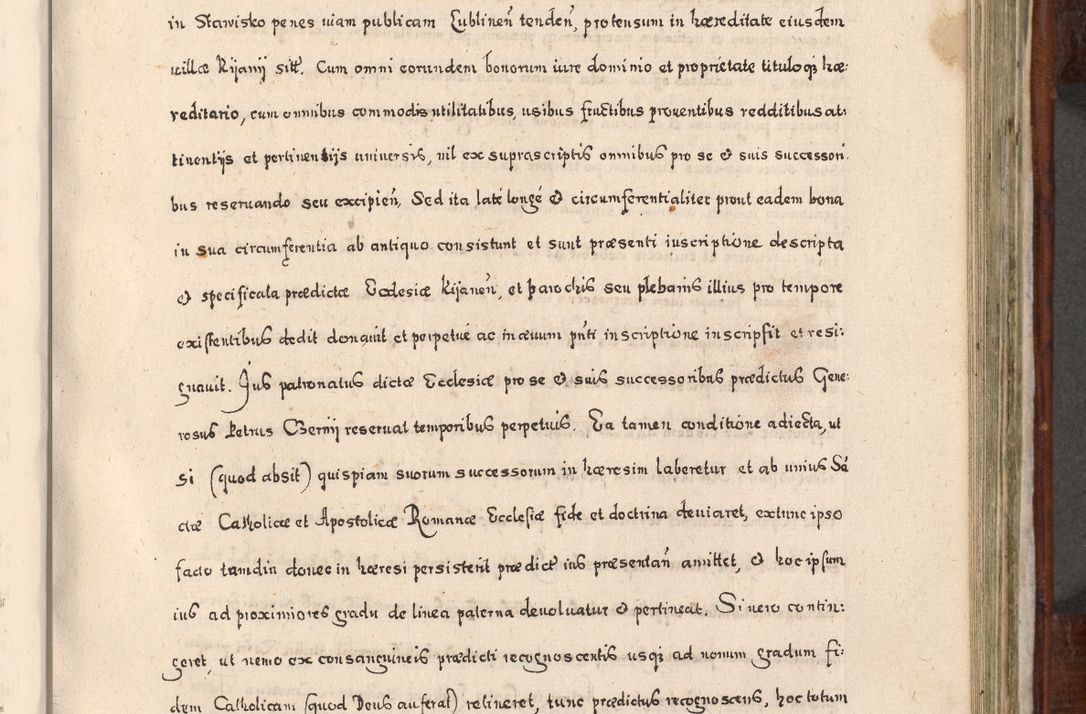 in Stawisko penes uiam publicam Lublineñ tendeñ, protensum in hæreditate eiusdem
uillæ Kijanij sitt. Cum omni eorundem bonorum iure dominio et proprietate tituloqꝫ hæ:
reditario, cum omnibus commodis utilitatibus, usibus fructibus prouentibus redditibus at:
tinentijs et pertinentijs uniuersis, nil ex suprascriptis omnibus pro se & suis successori:
bus reseruando seu excipieñ, Sed ita laté longé & circumferentialiter prout eadem bona
in sua circumferentia ab antiquo consistunt et sunt præsenti inscriptione descripta
& specificata prædictæ Ecclesiæ Kijaneñ, et parochis seu plebanis illius pro tempore
existentibus dedit donauit et perpetué ac in æuum pñti inscriptione inscripsit et resi:
gnauit. Jus patronatus dictæ Ecclesiæ pro se & suis successoribus prædictus Gene:
rosus Petrus Czernij reseruat temporibus perpetuis. Ea tamen conditione adiecta, ut
si (quod absit) quispiam suorum successorum in hæresim laberetur et ab unius Sā
ctæ Catholicæ et Apostolicæ Romanæ Ecclesiæ fide et doctrina deuiaret, extunc ipso
facto tamdiu donec in hæresi persisterit prædict ius præsentañ amittet, & hoc ipsum
ius ad proximiores gradu de linea paterna deuoluatur & pertineat. Si uero contin:
geret, ut nemo ex consanguineis prædicti recognoscentis usqꝫ ad nonum gradum fi:
dem Catholicam (quod Deus auferat) retineret, tunc prædictus recognoscens, hoc totum